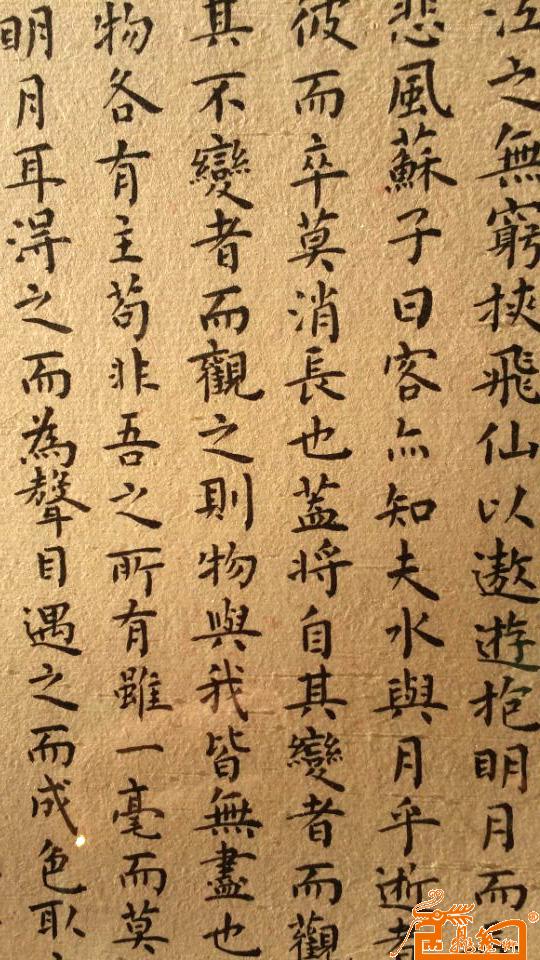 江之無窮挾飛仙以遨遊抱明月而
悲風蘇子曰客亦知夫水與月乎逝者
彼而卒莫消長也蓋将自其變者而觀
其不變者而觀之則物與我皆無盡也
物各有主苟非吾之所有雖一毫而莫
明月耳得之而為聲目遇之而成色取